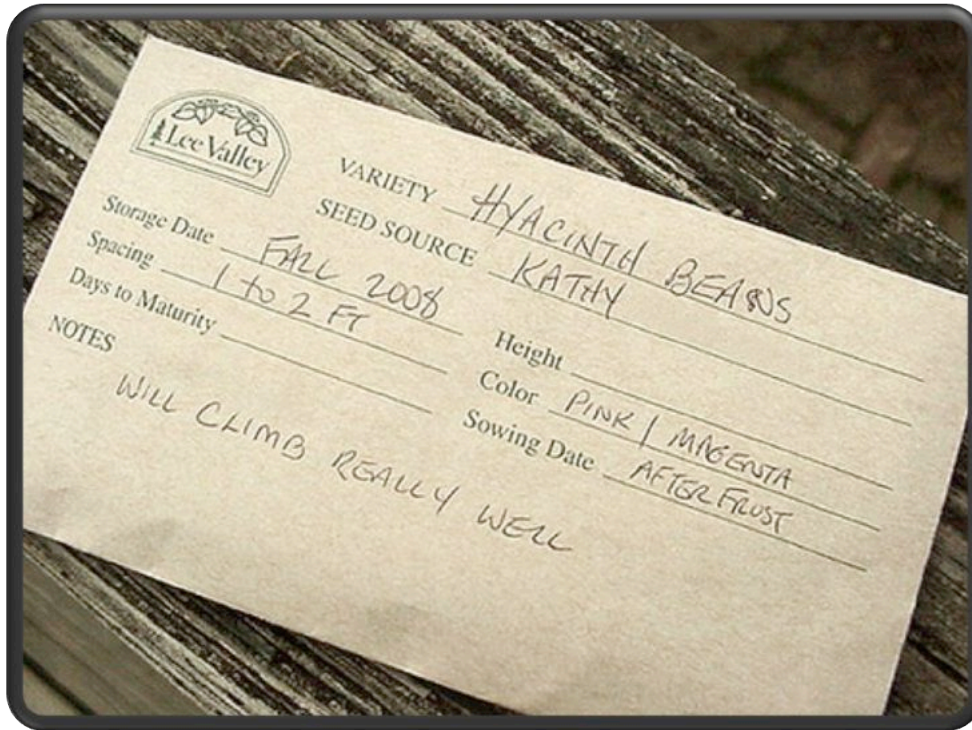 Lee Valley
VARIETY HYACINTH BEANS
SEED SOURCE KATHY
Storage Date FALL 2008
Spacing 1 to 2 FT
Days to Maturity
Height
Color PINK / MAGENTA
Sowing Date AFTER FROST
NOTES
WILL CLIMB REALLY WELL